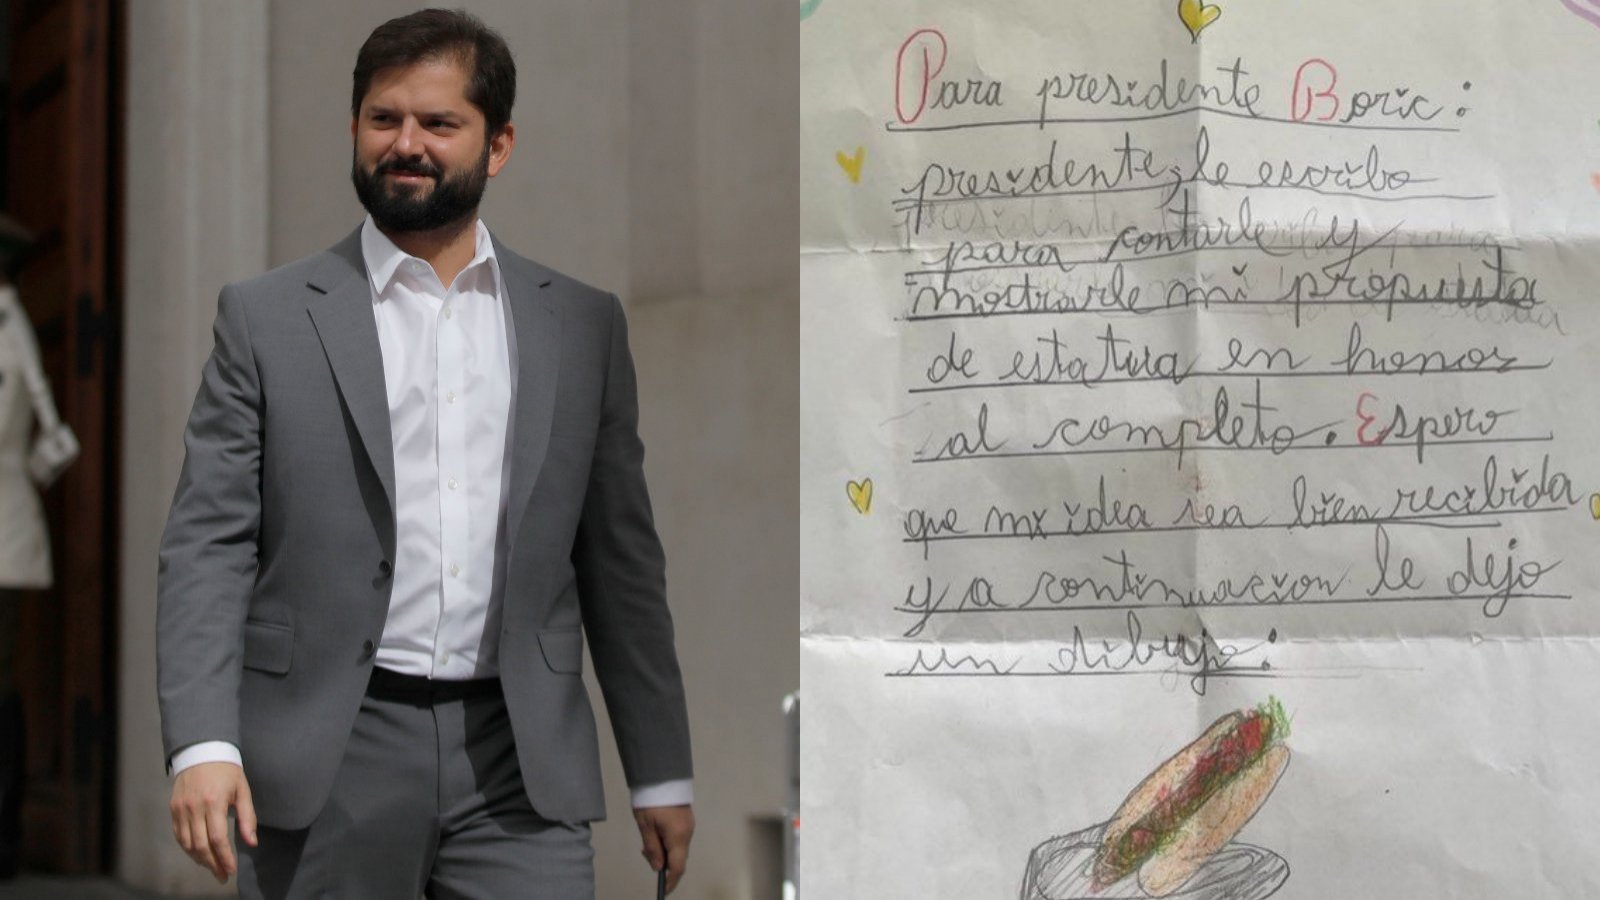 Para presidente Boric:
presidente, le escribo
para contarle y
mostrarle mi propuesta
de estatua en honor
al completo. Espero
que mi idea sea bien recibida
y a continuacion le dejo
un dibujo: